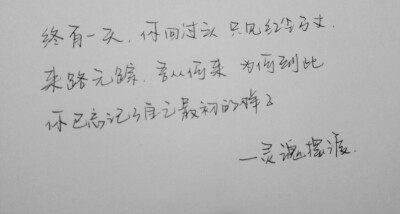 终有一天，你回过头 只见红尘万丈，
来路无踪，吾从何来 为何到此
你已忘记了自己最初的样子
—灵魂摆渡.